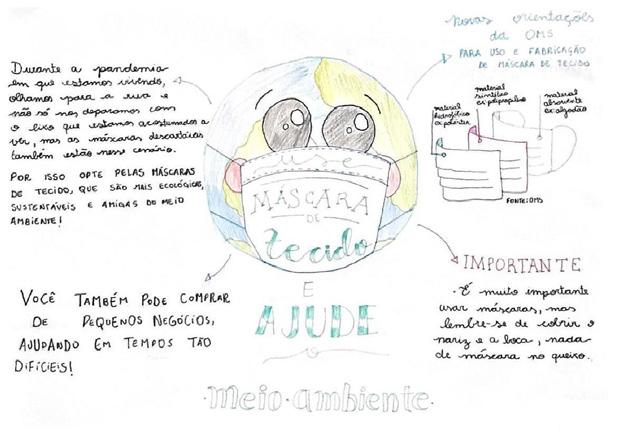 Durante a pandemia
em que estamos vivendo,
olhamos para a rua e
não só nos deparamos com
o lixo que estamos acostumados a
ver, mas as máscaras descartáveis
também estão nesse cenário.
POR ISSO OPTE PELAS MÁSCARAS
DE TECIDO, QUE SÃO MAIS ECOLÓGICAS,
SUSTENTÁVEIS E AMIGAS DO MEIO
AMBIENTE!
Novas orientações
da OMS
PARA USO E FABRICAÇÃO
DE MÁSCARA DE TECIDO
material
hidrofílico
ex: poliéster
material
sintético
ex: polipropileno
material
absorvente
ex: algodão
FONTE: OMS
use
MÁSCARA
DE
tecido
E
AJUDE
o
·meio·ambiente·
VOCÊ TAMBÉM PODE COMPRAR
DE PEQUENOS NEGÓCIOS,
AJUDANDO EM TEMPOS TÃO
DIFÍCEIS!
IMPORTANTE
· É muito importante
usar máscaras, mas
lembre-se de cobrir o
nariz e a boca, nada
de máscara no queixo.